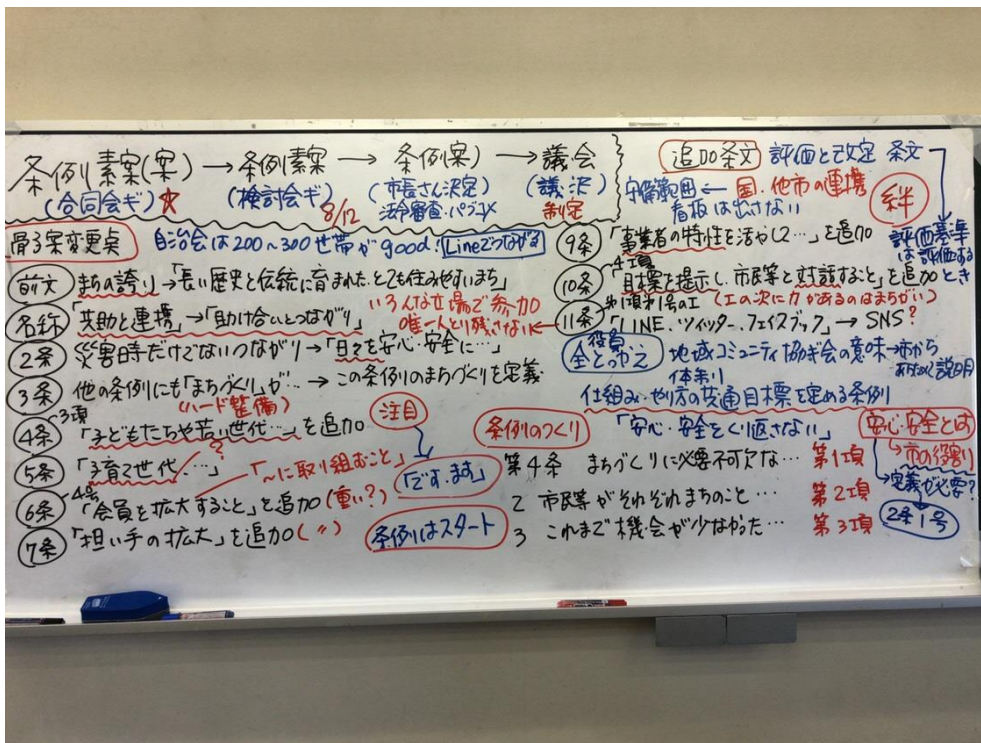 条例素案(案) → 条例素案 → 条例案) → 議会
(合同会ギ)☆ (検討会ギ) (市長さん決定) (議決)
8/12 法令審査・パブコメ 制定
骨子案変更点 自治会は200~300世帯がgood! Lineでつながる
前文 まちの誇り→「長い歴史と伝統に育まれた、とても住みやすいまち」
いろんな立場で参加
名称 「共助と連携」→「助け合いとつながり」 唯一人とり残さない←
2条 災害時だけでないつながり→「日々を安心・安全に…」
3条 他の条例にも「まちづくり」が… → この条例のまちづくりを定義
(ハード整備)
4条 3項 「子どもたちや若い世代…」を追加
?
5条 「子育て世代…」
「~に取り組むこと」
6条 4号 「会員を拡大すること」を追加(重い?)
7条 「担い手の拡大」を追加(〃)
注目
「です、ます」
条例はスタート
追加条文 評価と改定 条文
守備範囲 ← 国・他市の連携
看板は出さない
絆
評価基準
は評価する
とき
9条 「事業者の特性を活かして…」を追加
10条 4項 「目標を提示し、市民等と対話すること」を追加
(エの次にカがあるのはまちがい)
11条 「LINE、ツイッター、フェイスブック」→ SNS?
役員
全とっかえ 地域コミュニティ協ギ会の意味→市から
説明
仕組み・やり方の共通目標を定める条例
条例のつくり 「安心・安全をくり返さない」 安心・安全とは
→市の役割
第4条 まちづくりに必要不可欠な… 第1項 →定義が必要?
2 市民等がそれぞれまちのこと… 第2項 2条1号
3 これまで機会が少なかった… 第3項